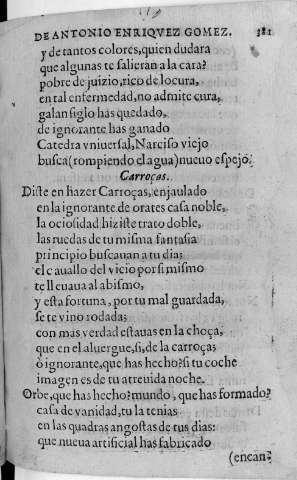 DE ANTONIO ENRIQVEZ GOMEZ. 381
y de tantos colores, quien dudara
que algunas te salieran a la cara?
pobre de juizio, rico de locura,
en tal enfermedad, no admite cura,
galan siglo has quedado,
de ignorante has ganado
Catedra vniuersal, Narciso viejo
busca (rompiendo el agua) nueuo espejo.
Carroças.
Diste en hazer Carroças, enjaulado
en la ignorante de orates casa noble,
la ociosidad hiziste trato doble,
las ruedas de tu misma fantasia
principio buscauan a tu dia;
el cauallo del vicio por si mismo
te lleuaua al abismo,
y esta fortuna, por tu mal guardada,
se te vino rodada;
con mas verdad estauas en la choça,
que en el aluergue, si, de la carroça;
ò ignorante, que has hecho? si tu coche
imagen es de tu atreuida noche.
Orbe, que has hecho? mundo, que has formado?
casa de vanidad, tu la tenias
en las quadras angostas de tus dias:
que nueua artificial has fabricado
(encan?